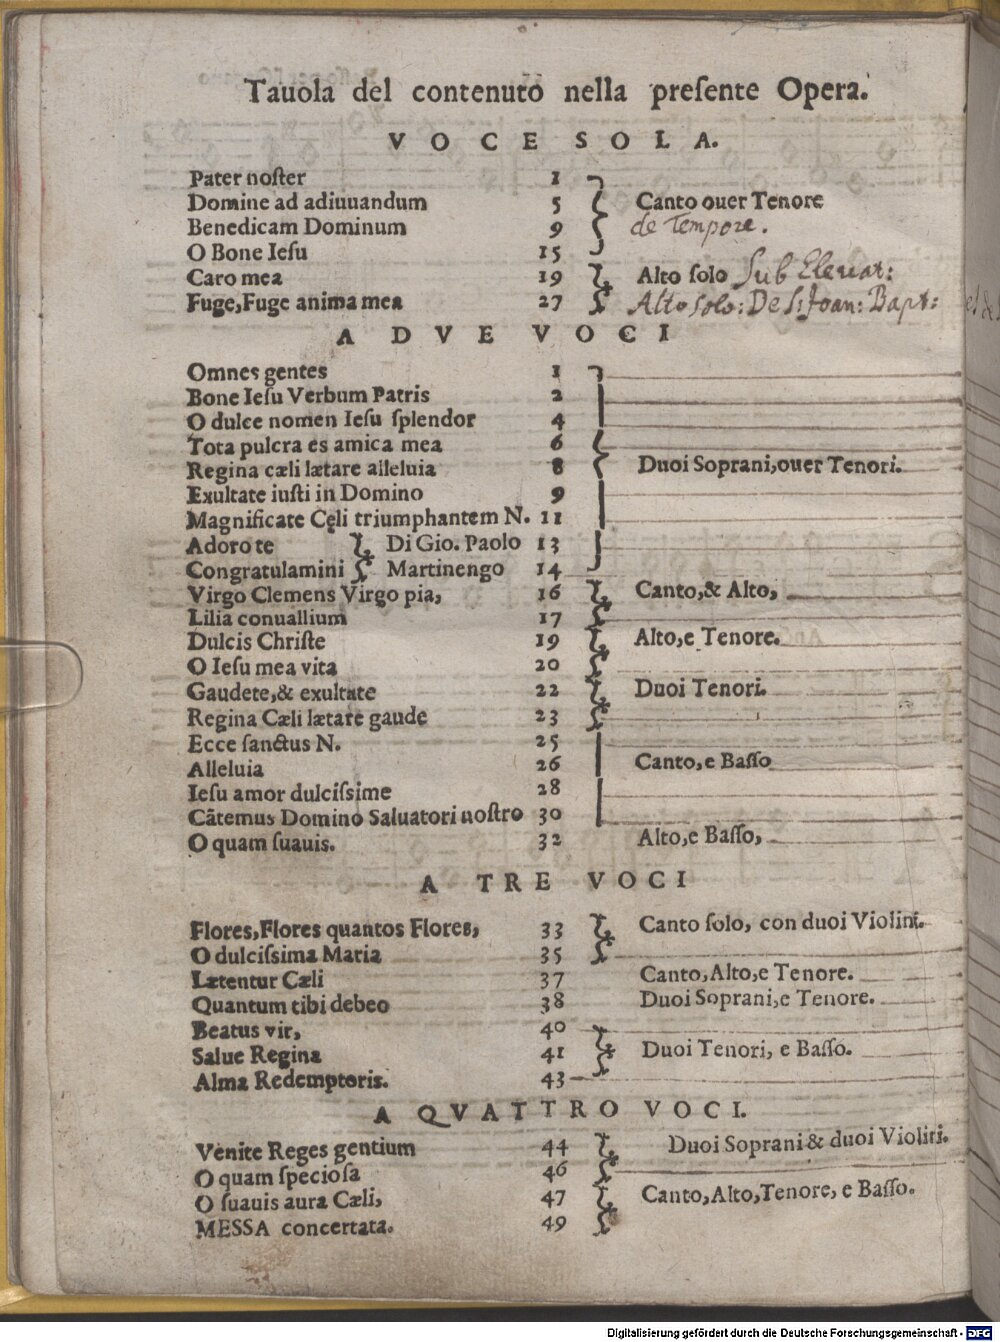 Tauola del contenuto nella preſente Opera.
VOCE SOLA.
Pater noſter 1
Domine ad adiuuandum 5 Canto ouer Tenore
Benedicam Dominum 9 de Tempore.
O Bone Ieſu 15
Caro mea 19 Alto ſolo Sub Eleuat:
Fuge, Fuge anima mea 27 Alto solo: De S: Joan: Bapt:
A DVE VOCI
Omnes gentes 1
Bone Ieſu Verbum Patris 2
O dulce nomen Ieſu ſplendor 4
Tota pulcra es amica mea 6
Regina cæli lætare alleluia 8 Duoi Soprani, ouer Tenori.
Exultate iuſti in Domino 9
Magnificate Cęli triumphantem N. 11
Adoro te } Di Gio. Paolo 13
Congratulamini } Martinengo 14
Virgo Clemens Virgo pia, 16 Canto, & Alto,
Lilia conuallium 17
Dulcis Chriſte 19 Alto, e Tenore.
O Ieſu mea vita 20
Gaudete, & exultate 22 Duoi Tenori.
Regina Cæli lætare gaude 23
Ecce ſanctus N. 25
Alleluia 26 Canto, e Baſſo
Ieſu amor dulciſsime 28
Cãtemus Domino Saluatori noſtro 30
O quam ſuauis. 32 Alto, e Baſſo,
A TRE VOCI
Flores, Flores quantos Flores, 33 Canto ſolo, con duoi Violini.
O dulciſsima Maria 35
Lætentur Cæli 37 Canto, Alto, e Tenore.
Quantum tibi debeo 38 Duoi Soprani, e Tenore.
Beatus vir, 40
Salue Regina 41 Duoi Tenori, e Baſſo.
Alma Redemptoris. 43
A QVATTRO VOCI.
Venite Reges gentium 44 Duoi Soprani & duoi Violiri.
O quam ſpecioſa 46
O ſuauis aura Cæli, 47 Canto, Alto, Tenore, e Baſſo.
MESSA concertata. 49
Digitalisierung gefördert durch die Deutsche Forschungsgemeinschaft - DFG